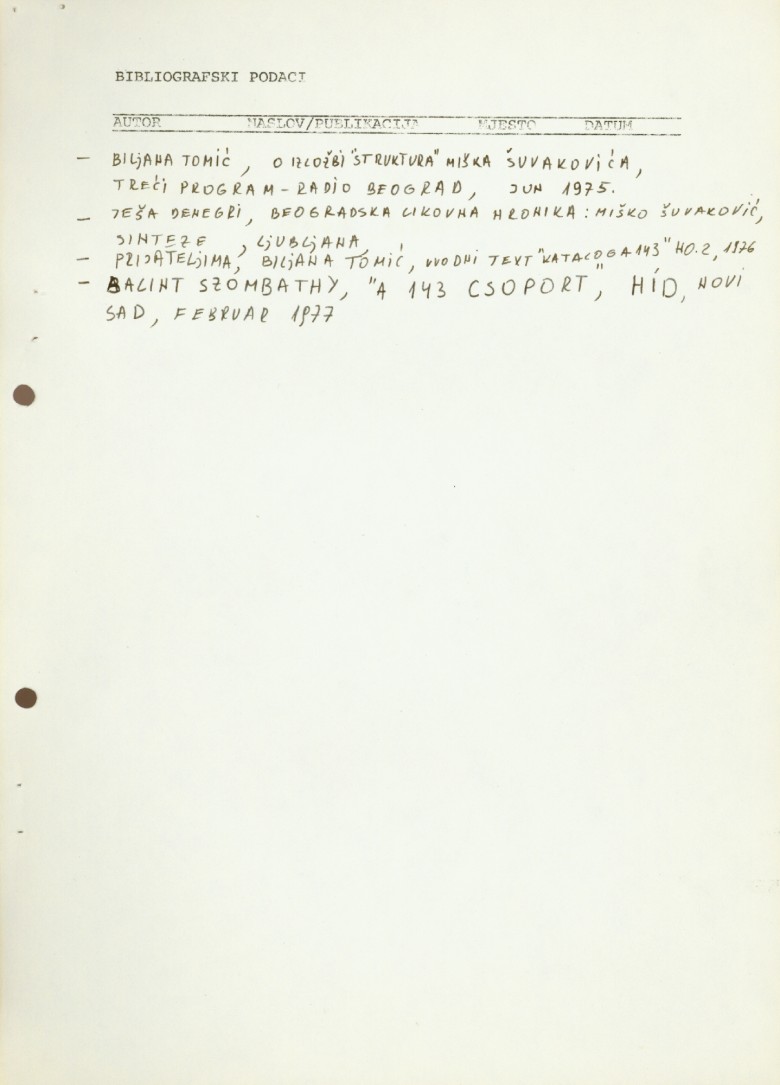 BIBLIOGRAFSKI PODACI
AUTOR NASLOV/PUBLIKACIJA MJESTO DATUM
– BILJANA TOMIĆ, O IZLOŽBI "STRUKTURA" MIŠKA ŠUVAKOVIĆA,
TREĆI PROGRAM – RADIO BEOGRAD, JUN 1975.
– JEŠA DENEGRI, BEOGRADSKA LIKOVNA HRONIKA: MIŠKO ŠUVAKOVIĆ,
SINTEZE, LJUBLJANA
– PRIJATELJIMA, BILJANA TOMIĆ, UVODNI TEXT "KATALOGA 143" NO.2, 1976
– BALINT SZOMBATHY, "A 143 CSOPORT", HÍD, NOVI
SAD, FEBRUAR 1977